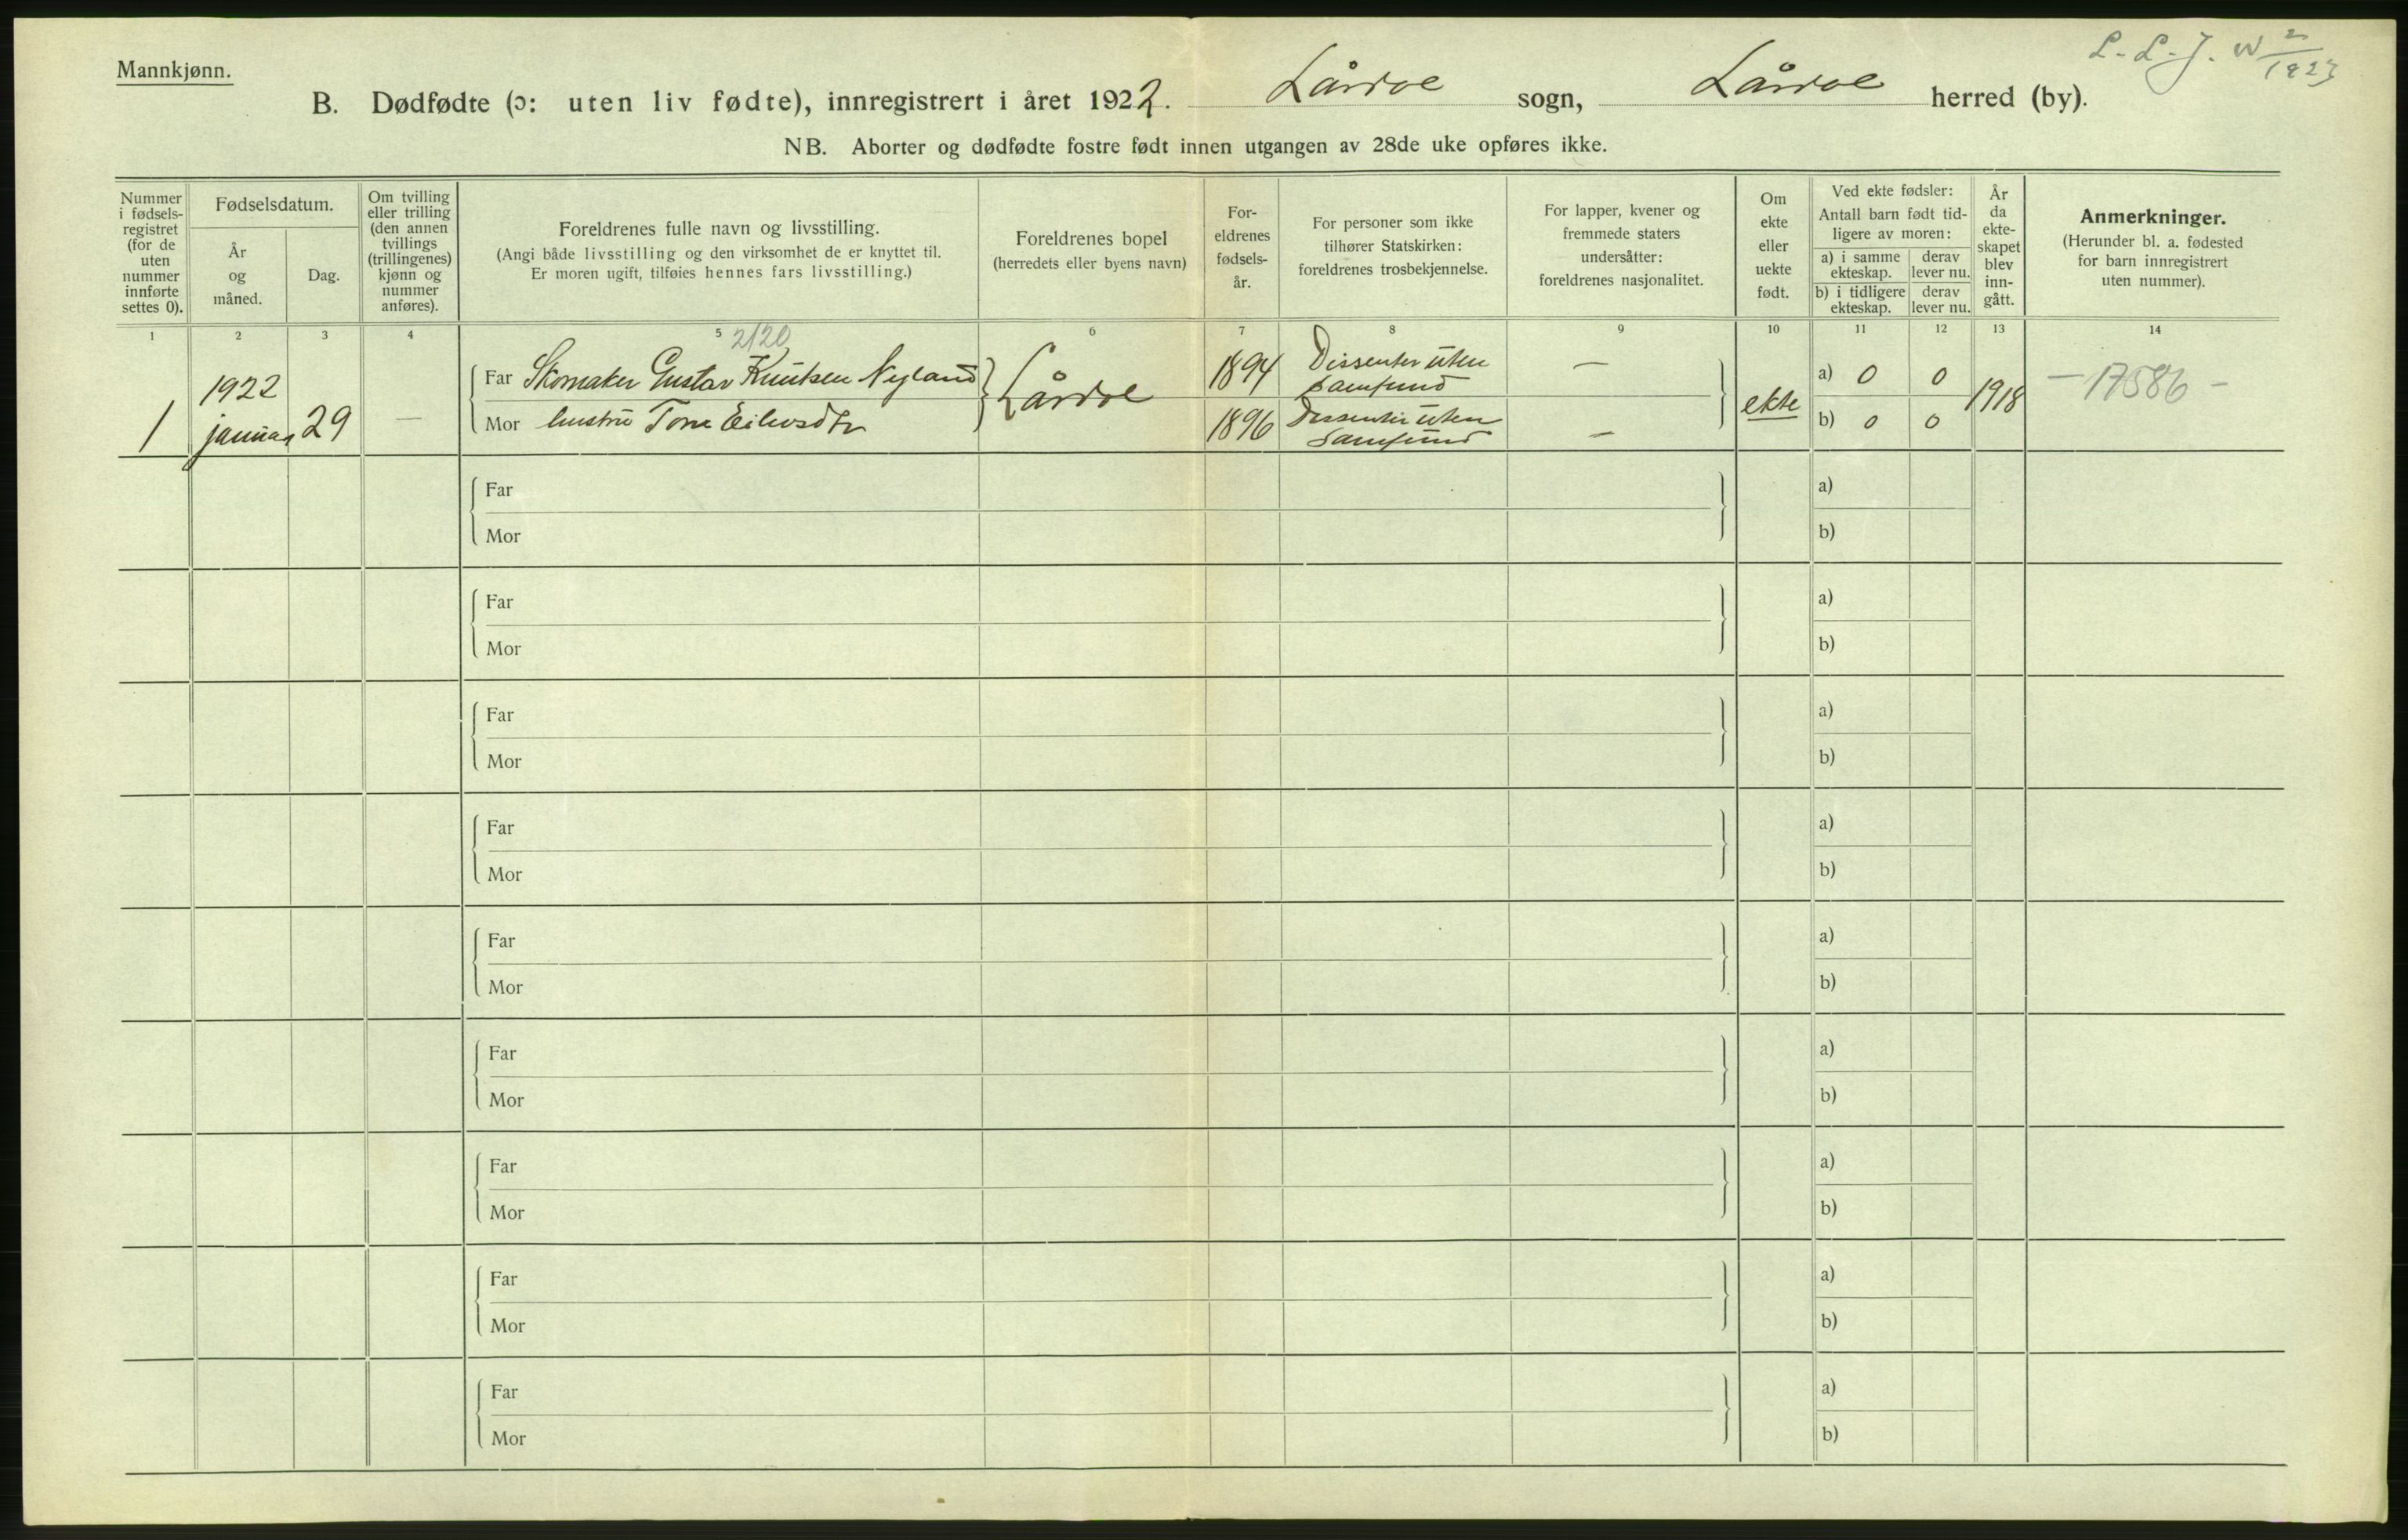 Mannkjønn.
L. L. J. W 2/1923
B. Dødfødte (ɔ: uten liv fødte), innregistrert i året 1922. Lårdal sogn, Lårdal herred (by).
NB. Aborter og dødfødte fostre født innen utgangen av 28de uke opføres ikke.
Nummer i fødsels-registret (for de uten nummer innførte settes 0).
Fødselsdatum.
År og måned.
Dag.
Om tvilling eller trilling (den annen tvillings (trillingenes) kjønn og nummer anføres).
Foreldrenes fulle navn og livsstilling.
(Angi både livsstilling og den virksomhet de er knyttet til.
Er moren ugift, tilføies hennes fars livsstilling.)
Foreldrenes bopel
(herredets eller byens navn)
For-eldrenes fødsels-år.
For personer som ikke tilhører Statskirken: foreldrenes trosbekjennelse.
For lapper, kvener og fremmede staters undersåtter: foreldrenes nasjonalitet.
Om ekte eller uekte født.
Ved ekte fødsler:
Antall barn født tid-ligere av moren:
a) i samme ekteskap.
derav lever nu.
b) i tidligere ekteskap.
derav lever nu.
År da ekte-skapet blev inn-gått.
Anmerkninger.
(Herunder bl. a. fødested for barn innregistrert uten nummer).
1 2 3 4 5 6 7 8 9 10 11 12 13 14
2120
1 1922 januar 29 —
Far Skomaker Gustav Knutsen Nyland
Mor hustru Tone Eilevsdtr
Lårdal
1894 Dissenter uten Samfund —
1896 Dissenter uten Samfund —
ekte
a) 0 0
b) 0 0
1918
— 17586 —
Far a)
Mor b)
Far a)
Mor b)
Far a)
Mor b)
Far a)
Mor b)
Far a)
Mor b)
Far a)
Mor b)
Far a)
Mor b)
Far a)
Mor b)
Far a)
Mor b)